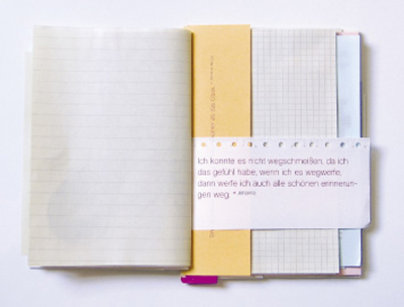 Ich konnte es nicht wegschmeißen, da ich
das gefühl habe, wenn ich es wegwerfe,
dann werfe ich auch alle schönen erinnerun-
gen weg.